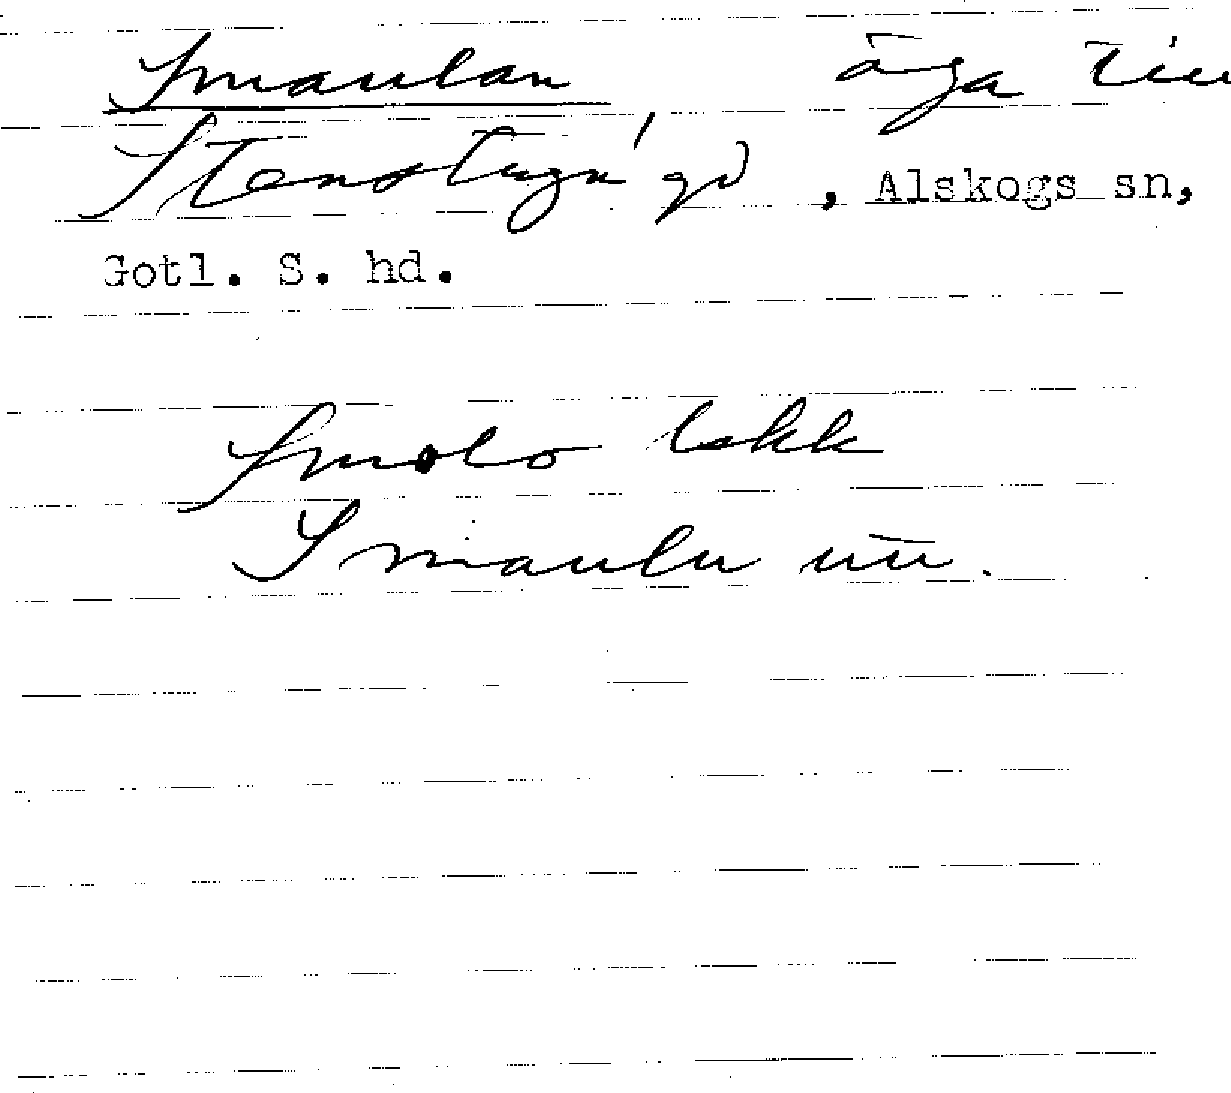 Smaulan åga till
Stenstugu gd, Alskogs sn,
Gotl. S. hd.
Smolo
Smaulu